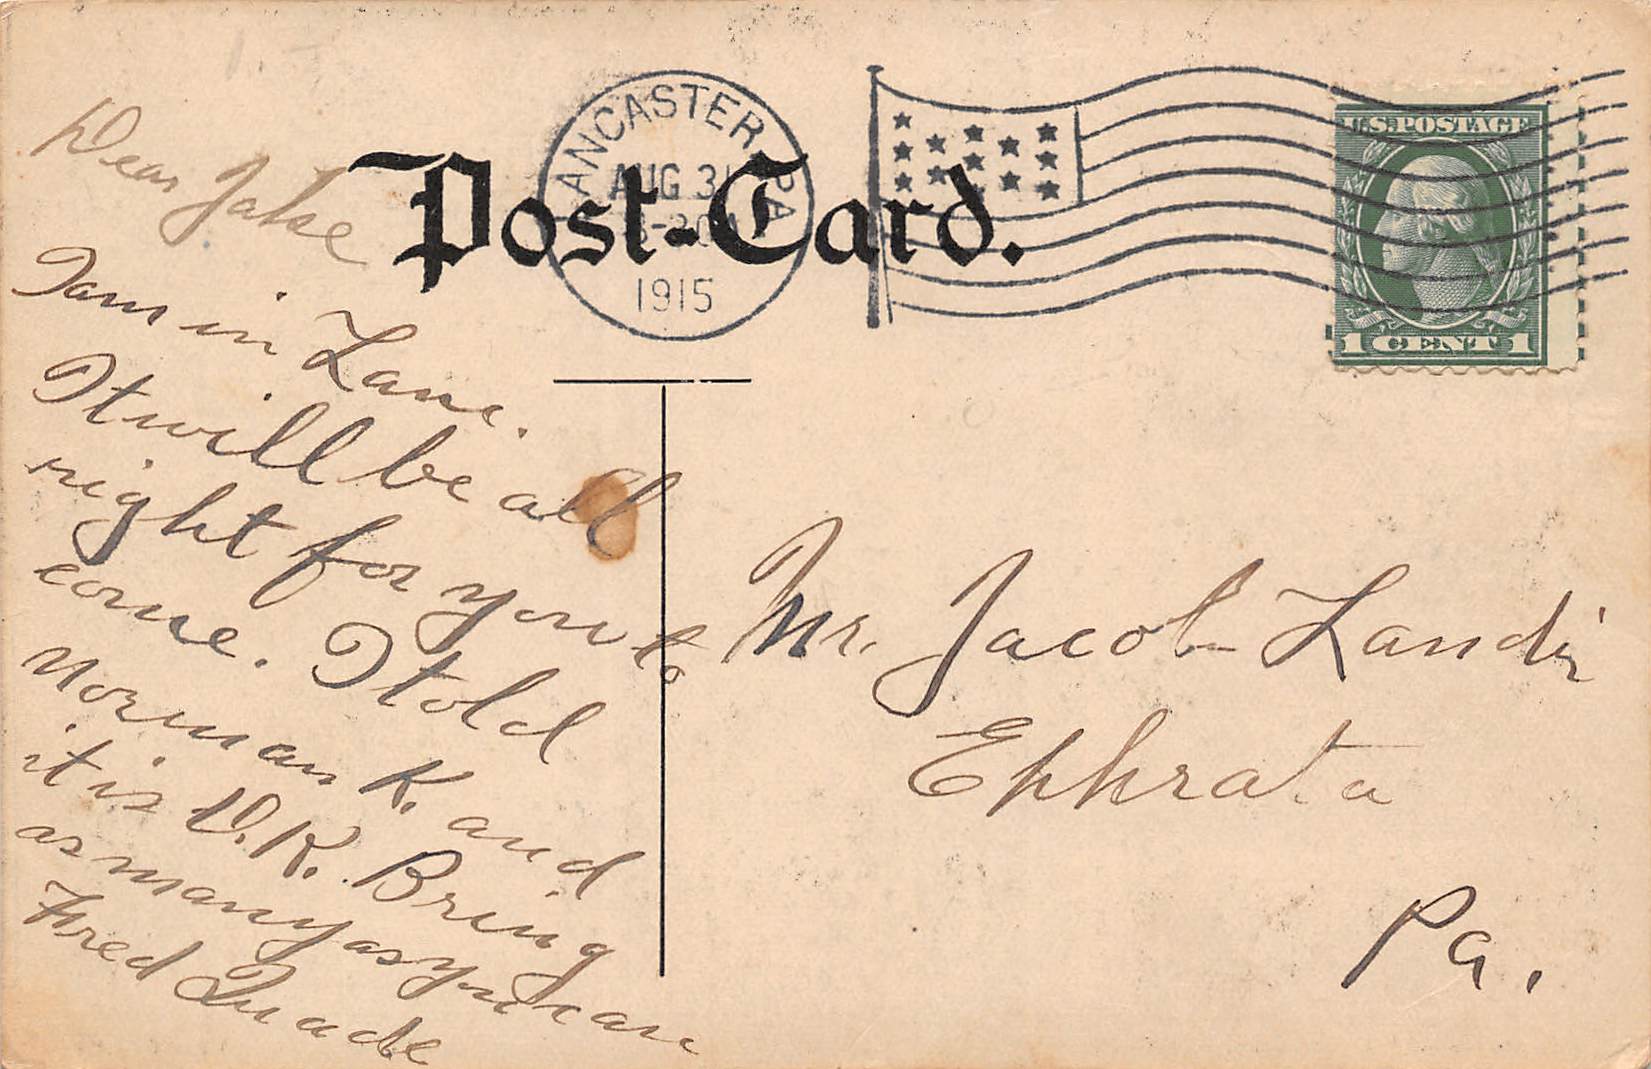 Post-Card.
LANCASTER, PA
AUG 31
1915
U.S. POSTAGE
1 CENT 1
Dear Jake
I am in Lanc.
It will be all
right for you to
come. I told
Norman K. and
it is O.K. Bring
as many as you can
Fred Quade
Mr. Jacob Landis
Ephrata
Pa.